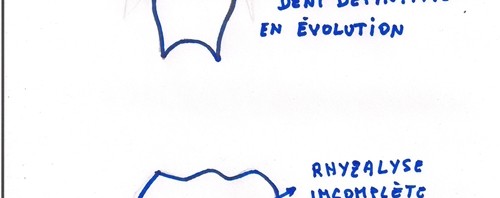 DENT DÉFINITIVE
EN ÉVOLUTION
RHYZALYSE
INCOMPLÈTE